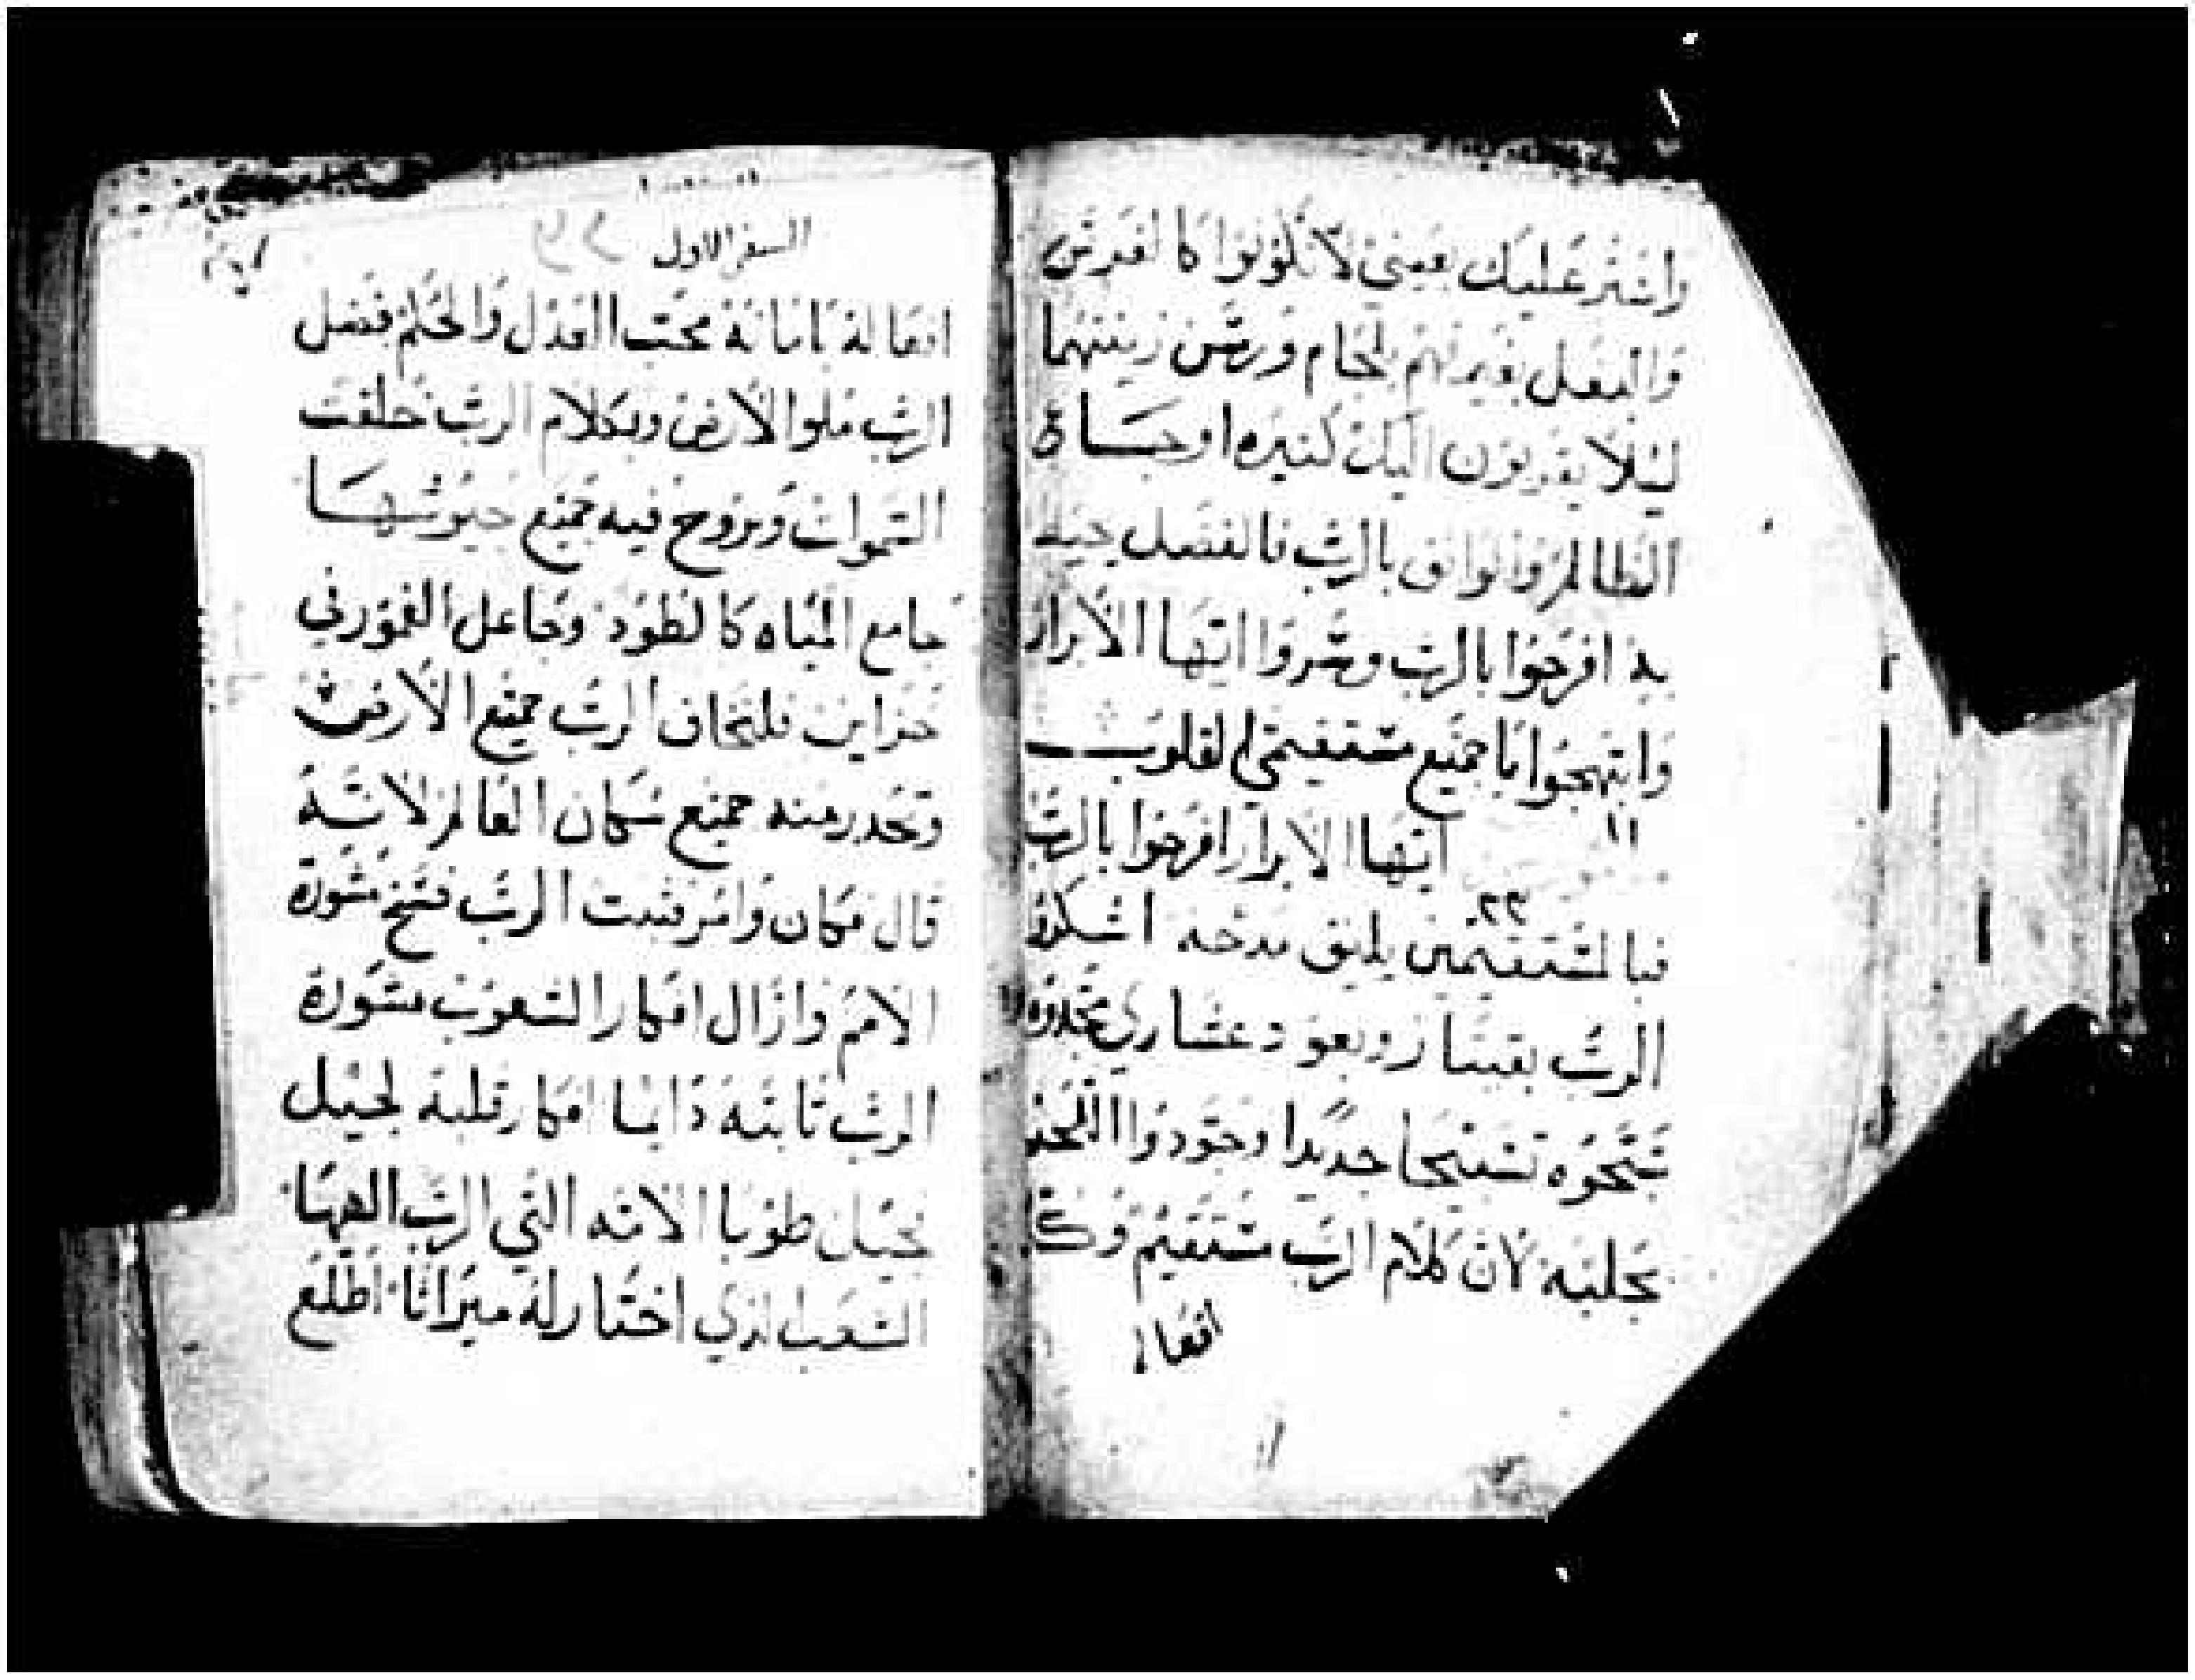 واشير عليك بعيني لا تكونوا كالفرس
والبغل بغير فهم بلجام ورسن زينتهما
ليلا يقربون اليك كثيره اوجاع
الظالم والواثق بالرب فالفضل يحيط
به افرحوا بالرب وسروا ايها الابرار
وابتهجوا يا جميع مستقيمي القلوب
ايها الابرار افرحوا بالرب
٣٢
فبالمستقيمين يليق مدحه اشكروا
الرب بقيتار وبعود عشاري مجدوه
سبحوه تسبيحا جديدا وجودوا اللحن
بجلبه لان كلام الرب مستقيم وكل
افعاله
السفر الاول
افعاله بامانه محب العدل والحكم فضل
الرب ملو الارض وبكلام الرب خلقت
السموات وبروح فيه جميع جيوشها
جامع المياه كالطود وجاعل الغمور في
خزاين فلتخاف الرب جميع الارض
وتحدر منه جميع سكان العالم لانه
قال فكان وامر فثبت الرب فسخ مشورة
الامم وازال افكار الشعوب مشورة
الرب ثابته دايما افكار قلبه لجيل
بجيل طوبا الامه التي الرب الهها
الشعب الذي اختاره له ميراثا اطلع